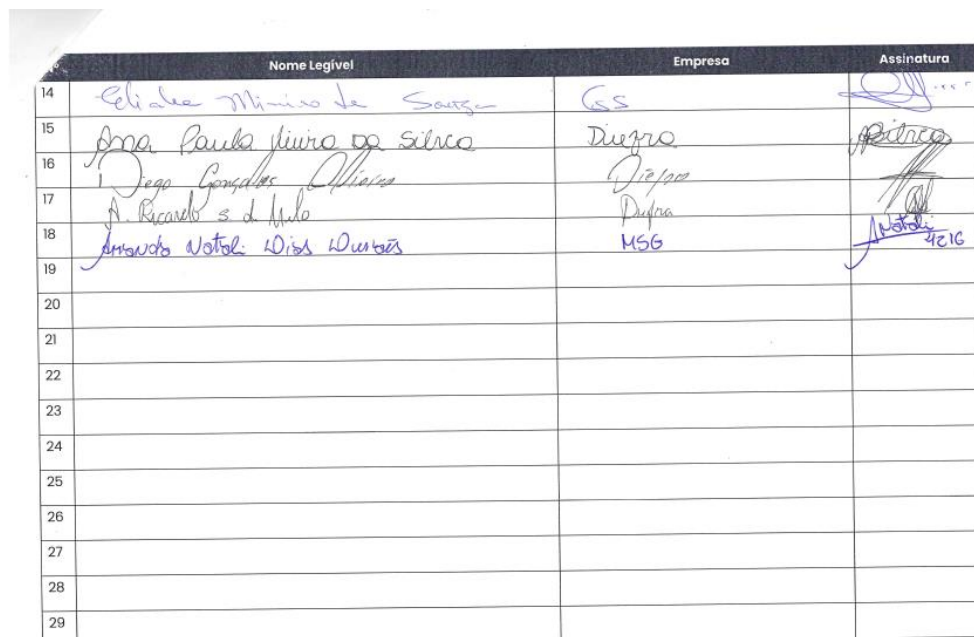 Nome Legível Empresa Assinatura
14 de Souza GSS
15 Ana Paula Vieira da Silva Diefra Silva
16 Diego Gonçalves Oliveira Diefra
17 A. Ricardo S. de Melo Diefra
18 Amanda Natali Dias MSG Natali
4216
19
20
21
22
23
24
25
26
27
28
29